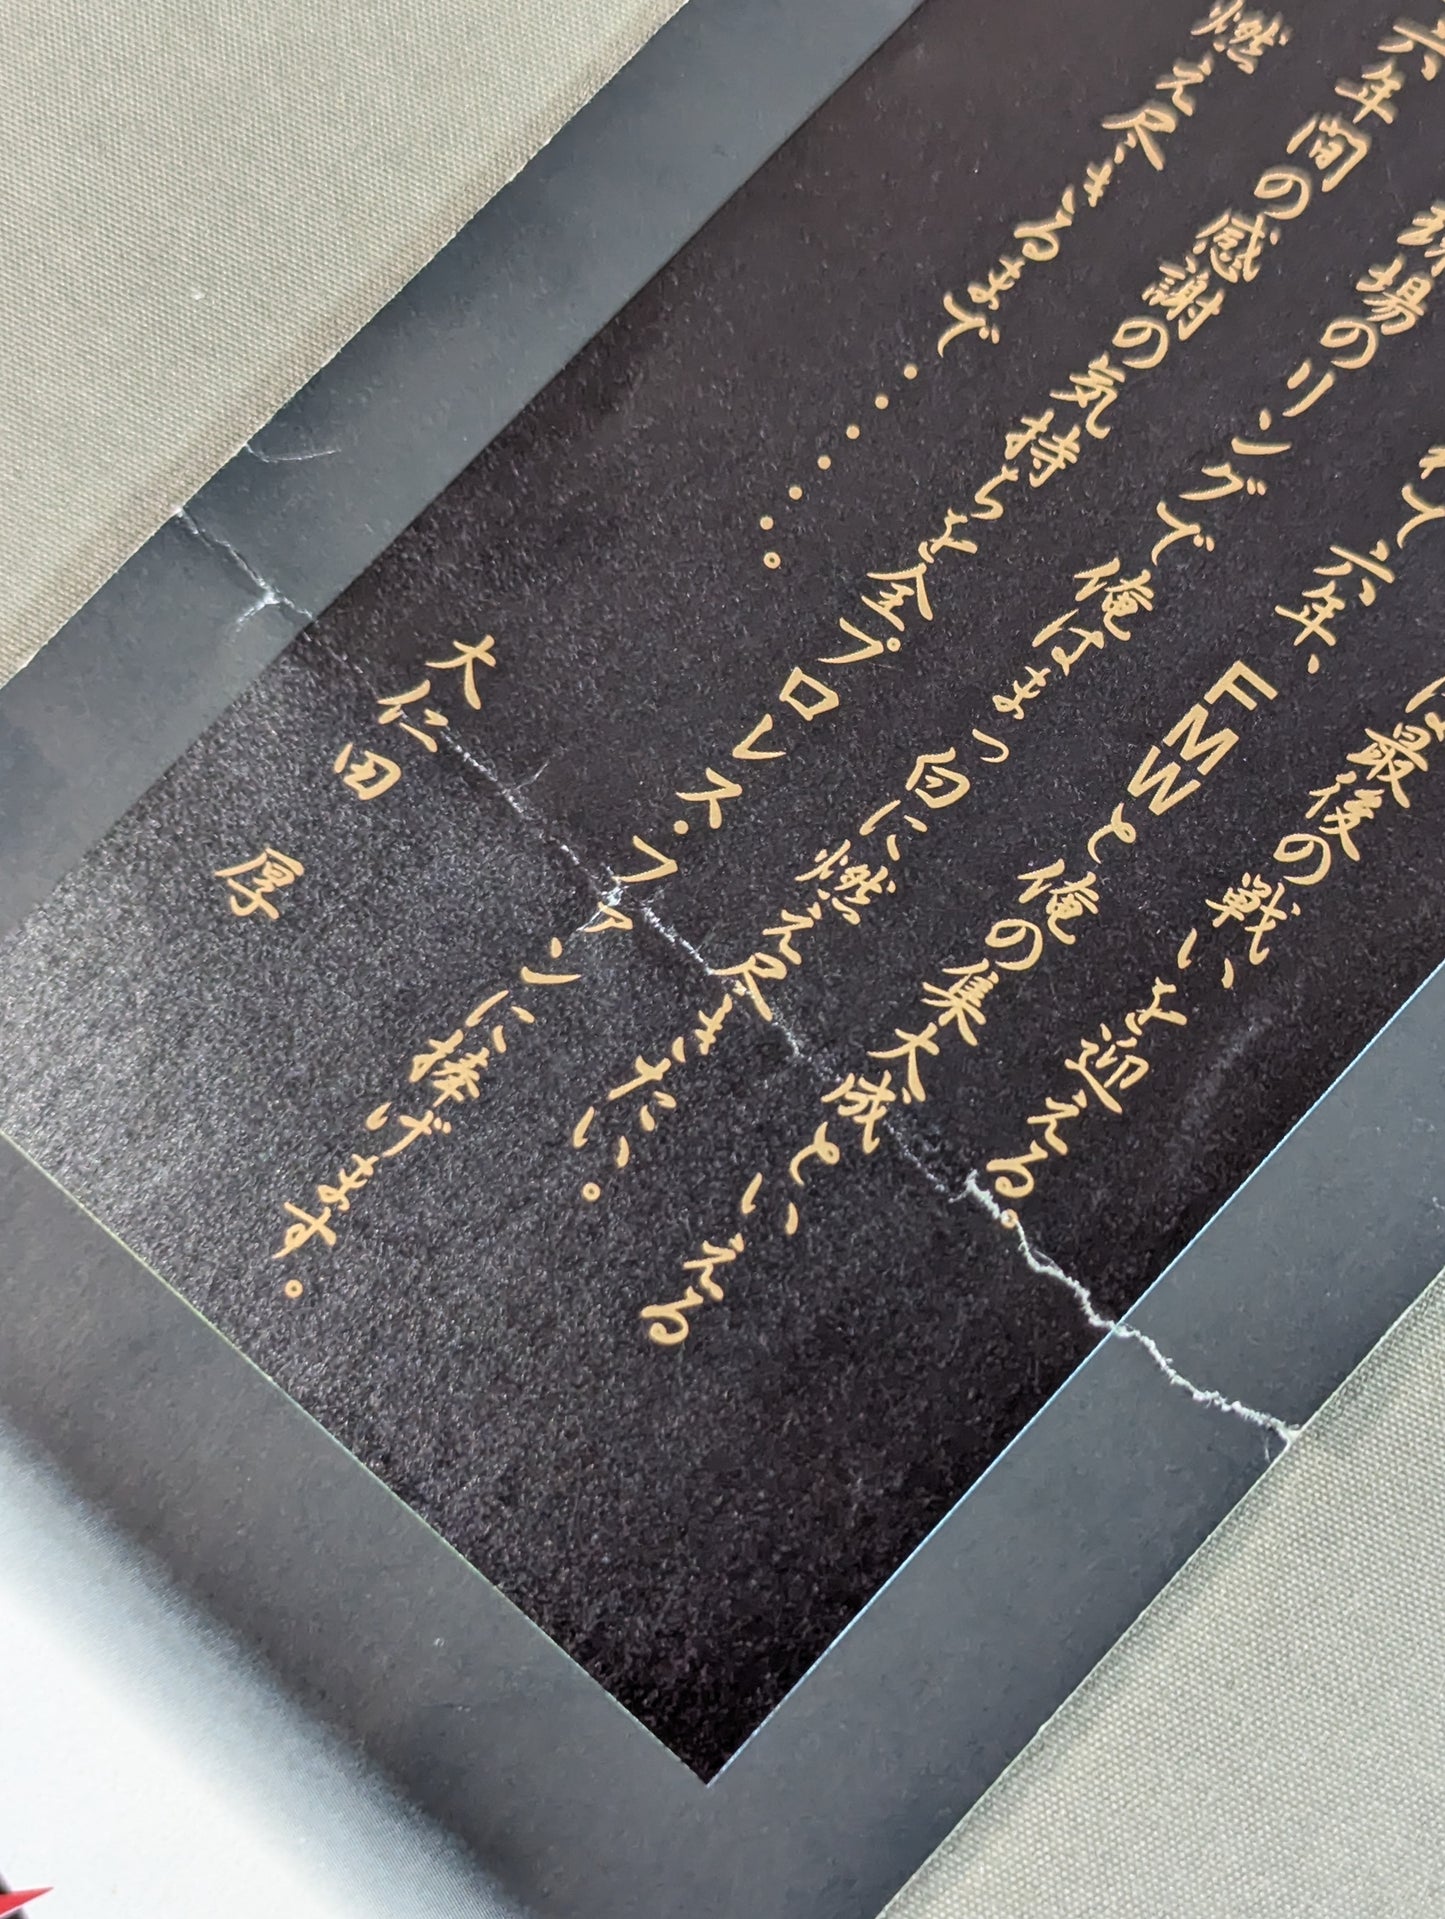 最後の戦いを迎える。
て六年、FMWと俺の集大成といえる
球場のリングで俺はまっ白に燃え尽きたい。
六年間の感謝の気持ちを全プロレス・ファンに捧げます。
燃え尽きるまで・・・・・・。
大仁田 厚